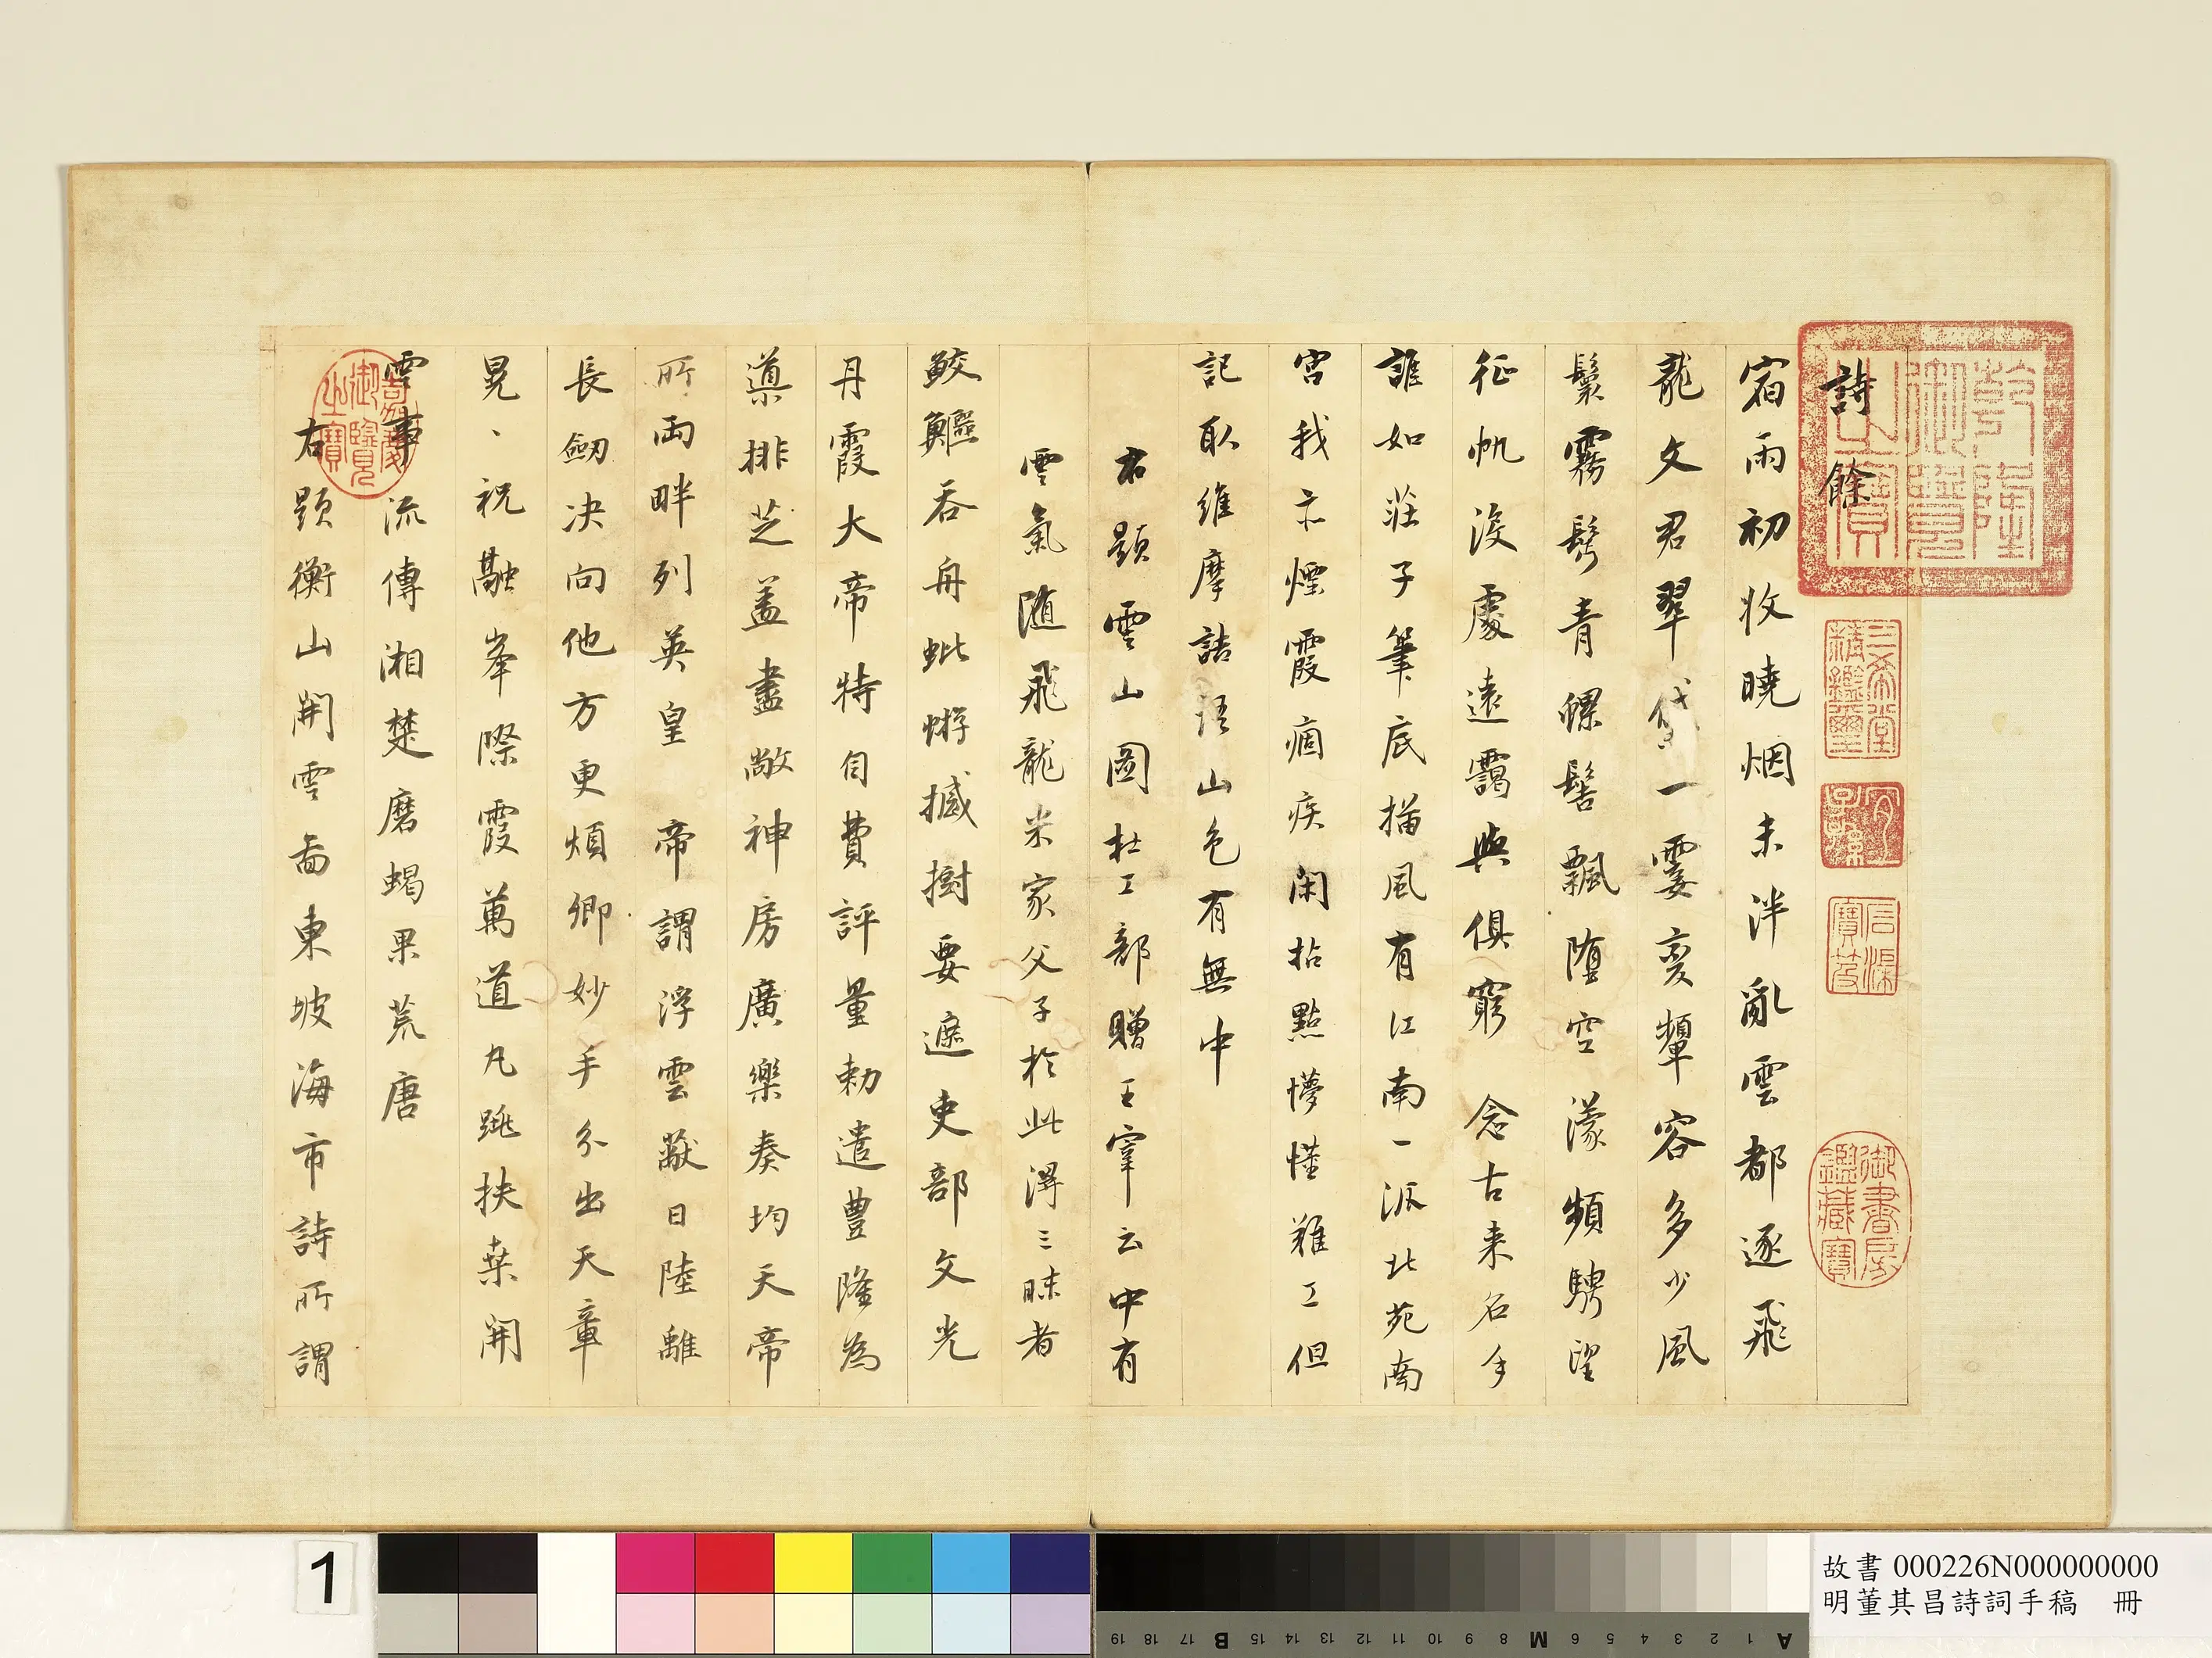 詩餘
宿雨初收曉烟未泮亂雲都逐飛
龍文君翠黛一霎変顰容多少風
鬟霧鬢青螺髻飄墮空濛頻騁望
征帆沒處遠靄與俱窮 念古来名手
誰如莊子筆底描風有江南一派北苑南
宮我亦煙霞痼疾閑拈點懞懂難工但
記取維摩詰語山色有無中
右題雲山圖杜工部贈王宰云中有
雲氣隨飛龍米家父子於此得三昧者
鮫鱷吞舟蚍蜉撼樹要遮吏部文光
丹霞大帝特自費評量勅遣豊隆為
導排芝蓋盡敞神房廣樂奏均天帝
所兩畔列英皇 帝謂浮雲蔽日陸離
長劒決向他方更煩卿妙手分出天章
晃、祝融峯際霞萬道丸跳扶桒開
雲事流傳湘楚磨蝎果荒唐
右題衡山開雲啚東坡海市詩所謂
乾隆御覽之寶
三希堂精鑑璽
宜子孫
石渠寶笈
御書房鑑藏寶
嘉慶御覽之寶
1
故書 000226N000000000
明董其昌詩詞手稿 冊
A 1 2 3 4 5 6 M 8 9 10 11 12 13 14 15 B 17 18 19